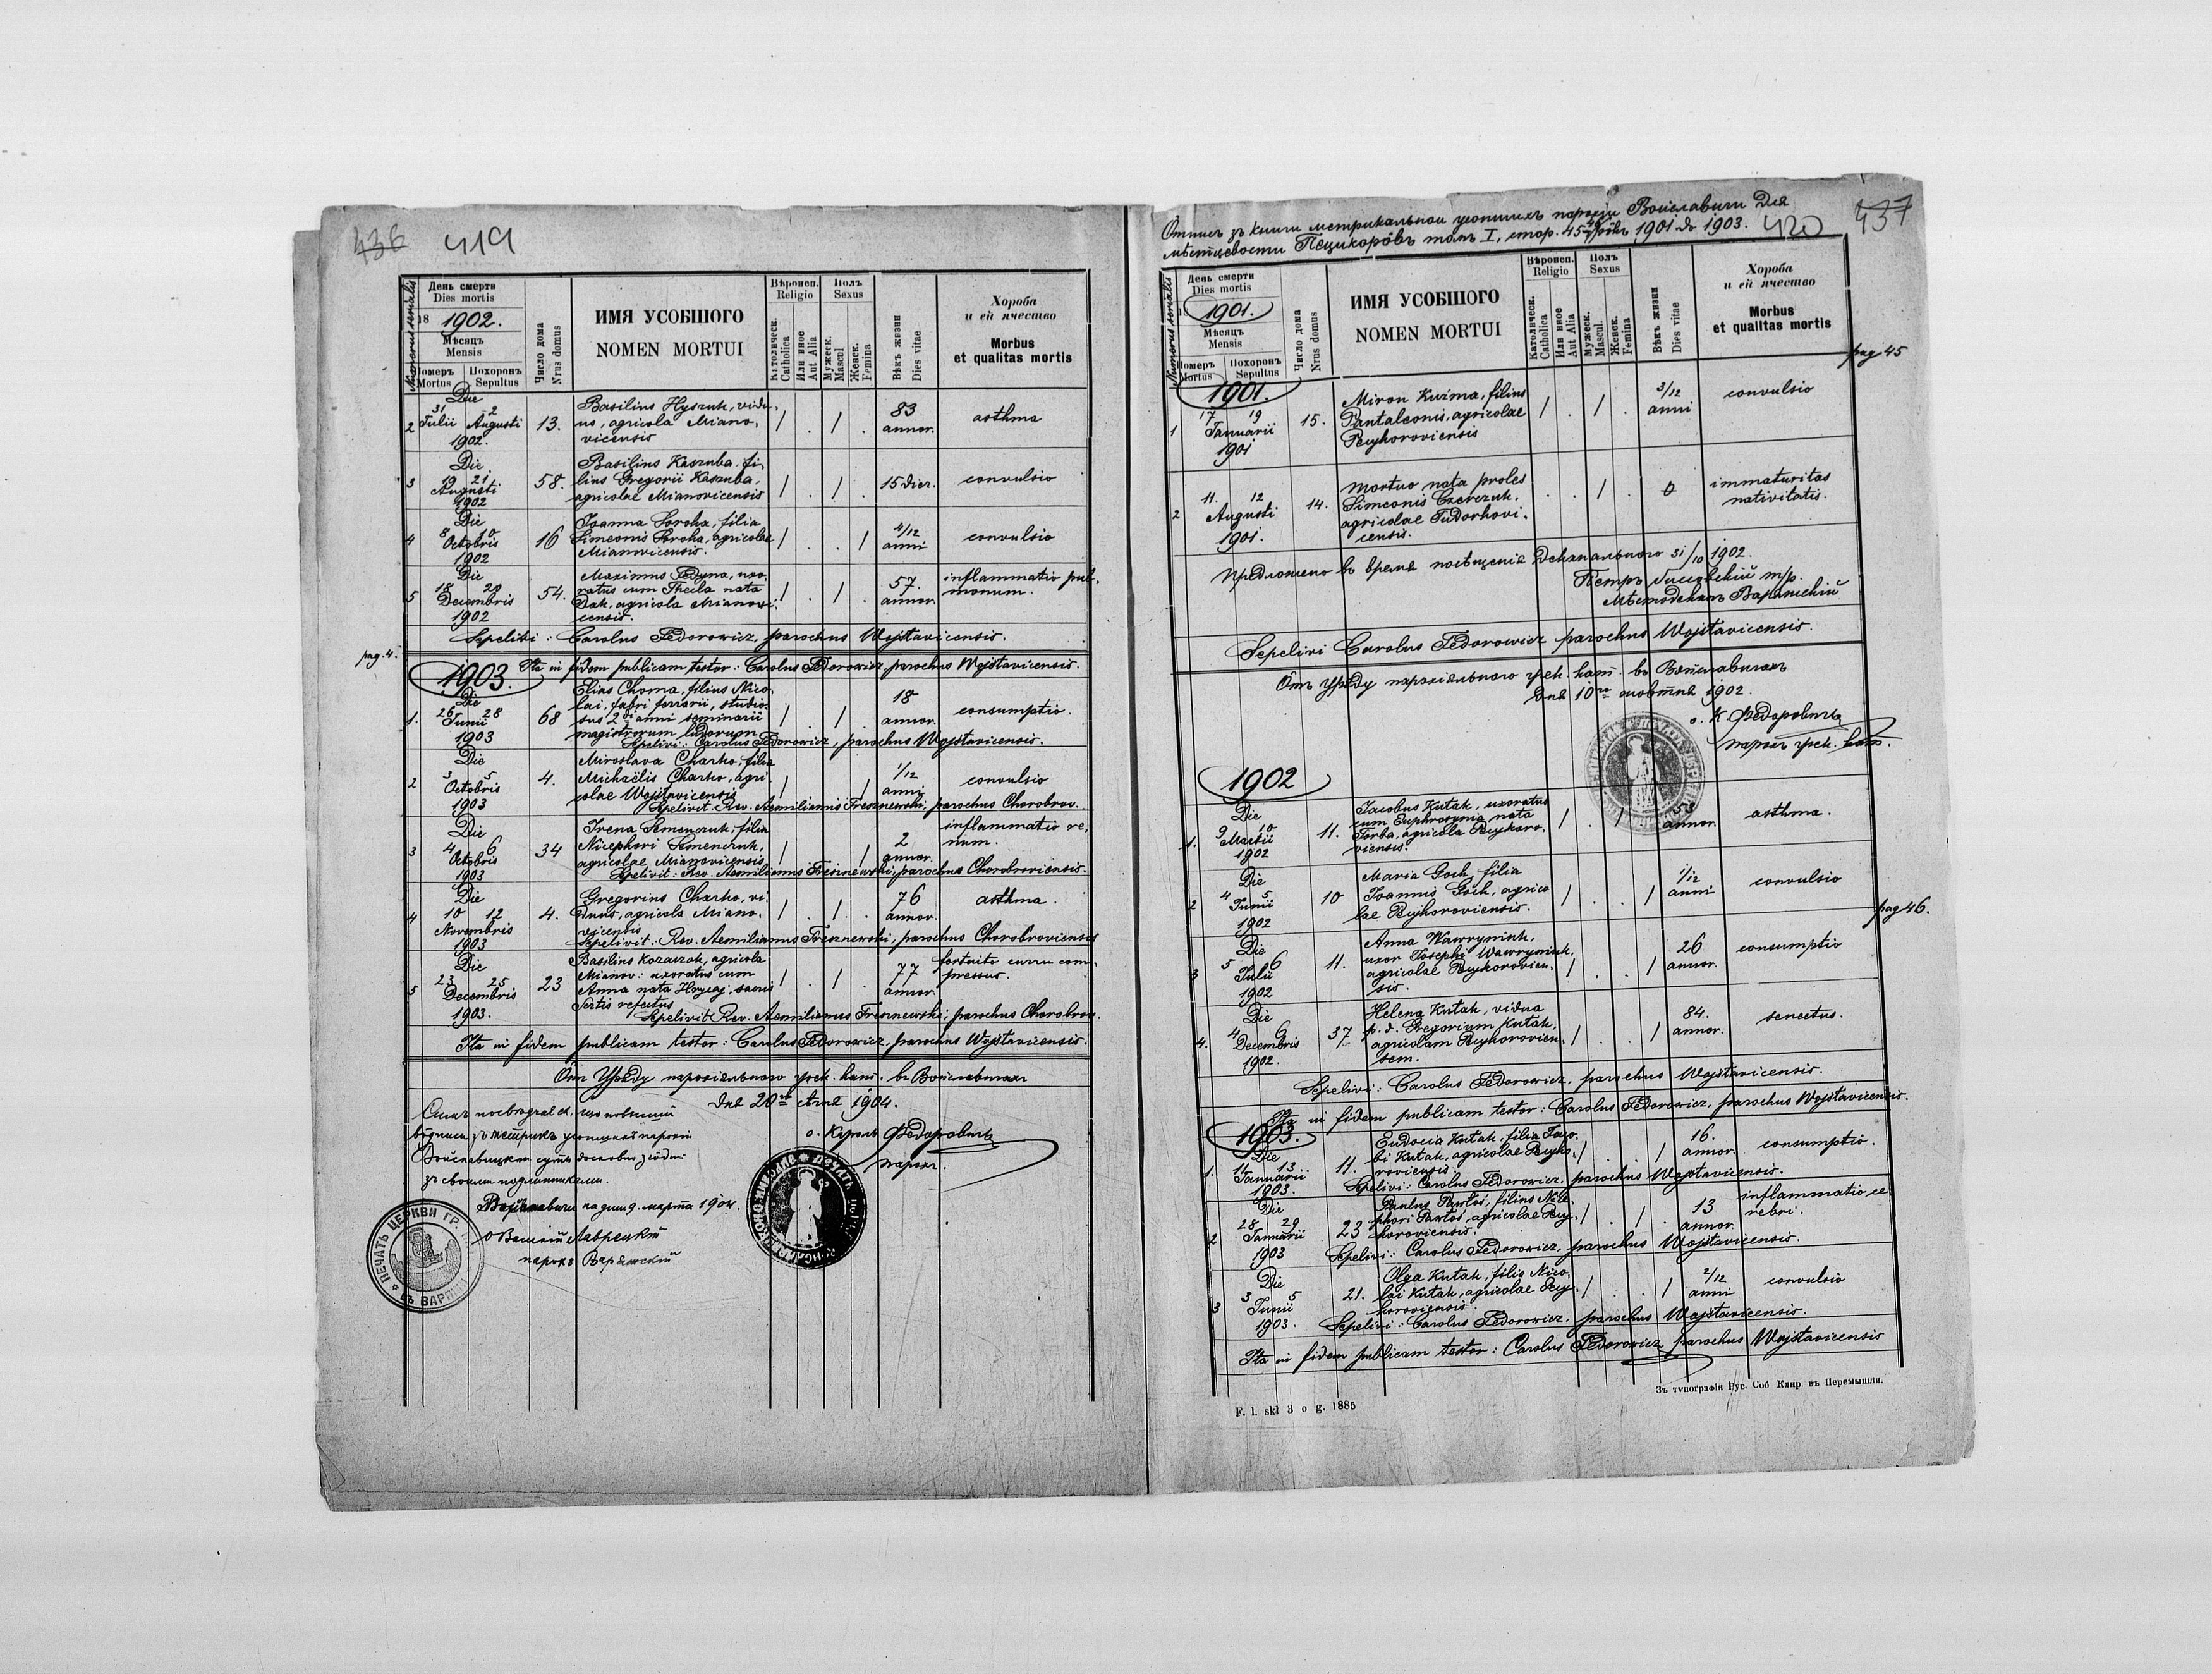 436 419
Numerus serialis
День смерти
Dies mortis
18 1902.
Мѣсяцъ
Mensis
Померъ Mortus
Похоронъ Sepultus
Число дома
Nrus domus
ИМЯ УСОБШОГО
NOMEN MORTUI
Вѣроисп.
Religio
Католическ.
Catholica
Или иное
Aut Alia
Полъ
Sexus
Мужеск.
Mascul
Женск.
Femina
Вѣкъ жизни
Dies vitae
Хороба
и ей ячество
Morbus
et qualitas mortis
Die
2 31 Julii 2 Augusti 1902. 13. Basilius Hyszuk, vidu-
us, agricola Miano-
vicensis / . / . 83 annor. asthma
Die
3 19 21 Augusti 1902 58. Basilius Kaszuba, fi-
lius Gregorii Kaszuba,
agricolae Mianovicensis / . / . 15 dier. convulsio
Die
4 8 10 Octobris 1902 16 Joanna Soroka, filia
Simeonis Soroka, agricolae
Mianovicensis. / . . / 4/12 anni convulsio
Die
5 18 20 Decembris 1902 54. Maximus Fedyna, uxo-
ratus cum Thecla nata
Dak, agricola Mianovi-
censis. / . / . 57. annor. inflammatio pul-
monum.
Sepelivi: Carolus Fedorowicz, parochus Wojsławicensis.
pag. 4.
1903. Ita in fidem publicam testor: Carolus Fedorowicz, parochus Wojsławicensis.
Die
1. 26 28 Junii 1903 68 Elias Choma, filius Nico-
lai, fabri ferrarii, studio-
sus 2di anni seminarii
magistrorum ludorum / . / . 18 annor. consumptio.
Sepelivi: Carolus Fedorowicz, parochus Wojsławicensis.
Die
2 3 5 Octobris 1903 4. Miroslava Charko, filia
Michaëlis Charko, agri-
colae Wojsławicensis / / 1/12 anni convulsio
Sepelivit Rev. Aemilianus Tresznewski, parochus Chorobrov.
Die
3 4 6 Octobris 1903 34 Irena Semenczuk, filia
Nicephori Semenczuk,
agricolae Mianovicensis / / 2 annor. inflammatio re-
num.
Sepelivit: Rev. Aemilianus Tresznewski, parochus Chorobroviensis.
Die
4 10 12 Novembris 1903 4. Gregorius Charko, vi-
duus, agricola Miano-
vicensis / . / . 76 annor. asthma.
Sepelivit: Rev. Aemilianus Tresznewski, parochus Chorobroviensis
Die
5 23 25 Decembris 1903. 23 Basilius Kozaczok, agricola
Mianov: uxoratus cum
Anna nata Hrycaj, sacris
refectus / . / . 77 annor. fortuito curru com-
pressus.
Sepelivit Rev. Aemilianus Tresznewski, parochus Chorobrov.
Ita in fidem publicam testor: Carolus Fedorowicz, parochus Wojsławicensis.
Отъ Уряду парохіяльного греч. кат. въ Войславичахъ
дня 20го 1904.
о. Кароль Федоровичъ
парохъ.
зъ своими подлинниками.
9. марта 1904.
о Василій Лаврецкій
парохъ Варяжскій
ПЕЧАТЬ ЦЕРКВИ ГР. ВЪ
Отписъ зъ книги метрикальнои усопшихъ парохіи Войславичи для
мѣстцевости Пѣцикорôвъ томъ I, стор. 45 1901 до 1903. 420 437
Numerus serialis
День смерти
Dies mortis
1901.
Мѣсяцъ
Mensis
Померъ Mortus
Похоронъ Sepultus
Число дома
Nrus domus
ИМЯ УСОБШОГО
NOMEN MORTUI
Вѣроисп.
Religio
Католическ.
Catholica
Или иное
Aut Alia
Полъ
Sexus
Мужеск.
Mascul.
Женск.
Femina
Вѣкъ жизни
Dies vitae
Хороба
и ей ячество
Morbus
et qualitas mortis
pag 45
1901.
1 17 19 Januarii 1901 15. Miron Kuźma, filius
Pantaleonis, agricolae
Peÿkoroviensis / . / . 3/12 anni convulsio
2 11. 12 Augusti 1901. 14. Mortuo nata proles
Simeonis Czerczuk,
agricolae Tudorkovi-
censis. . . / . 0 immaturitas
nativitatis.
Предложено въ время посѣщенія деканального 31/10 1902.
Петръ m/p.
Sepelivi Carolus Fedorowicz parochus Wojsławicensis.
Отъ Уряду парохіяльного греч. кат. въ Войславичахъ
дня 10го жовтня 1902.
о. К. Федоровичъ
парохъ греч. кат.
1902
Die
1. 9 10 Martii 1902 11. Jacobus Kutak, uxoratus
cum Euphrosynia nata
Torba, agricola Peÿkoro-
viensis. / . / 53 annor. asthma.
Die
2 4 5 Junii 1902 10 Maria Goch, filia
Joannis Goch, agrico
lae Peÿkoroviensis. / . . / 1/12 anni convulsio
pag 46.
Die
3 5 6 Julii 1902 11. Anna Wawryniuk,
uxor Josephi Wawryniuk,
agricolae Peÿkorovien-
sis. / . . / 26 annor. consumptio
Die
4. 4 6 Decembris 1902. 37 Helena Kutak, vidua
p. d. Gregorium Kutak,
agricolam Peÿkorovien-
sem. / . . / 84. annor. senectus.
Sepelivi: Carolus Fedorowicz, parochus Wojsławicensis.
Ita in fidem publicam testor: Carolus Fedorowicz, parochus Wojsławicensis.
1903.
Die
1. 11 13 Januarii 1903. 11. Eudocia Kutak, filia Jaco-
bi Kutak, agricolae Peÿko-
roviensis. / . . / 16. annor. consumptio.
Sepelivi: Carolus Fedorowicz, parochus Wojsławicensis.
Die
2 28 29 Januarii 1903 23 Paulus Pawłoś, filius Nice-
phori Pawłoś, agricolae Peÿ-
koroviensis. / . / . 13 annor. inflammatio ce-
rebri.
Sepelivi: Carolus Fedorowicz, parochus Wojsławicensis.
Die
3 3 5 Junii 1903. 21. Olga Kutak, filia Nico-
lai Kutak, agricolae Peÿ-
koroviensis. / . . / 2/12 anni convulsio
Sepelivi: Carolus Fedorowicz, parochus Wojsławicensis.
Ita in fidem publicam testor: Carolus Fedorowicz parochus Wojsławicensis
Зъ типографіи Рус. Соб Клир. въ Перемышли.
F. l. skł 3 o g. 1885